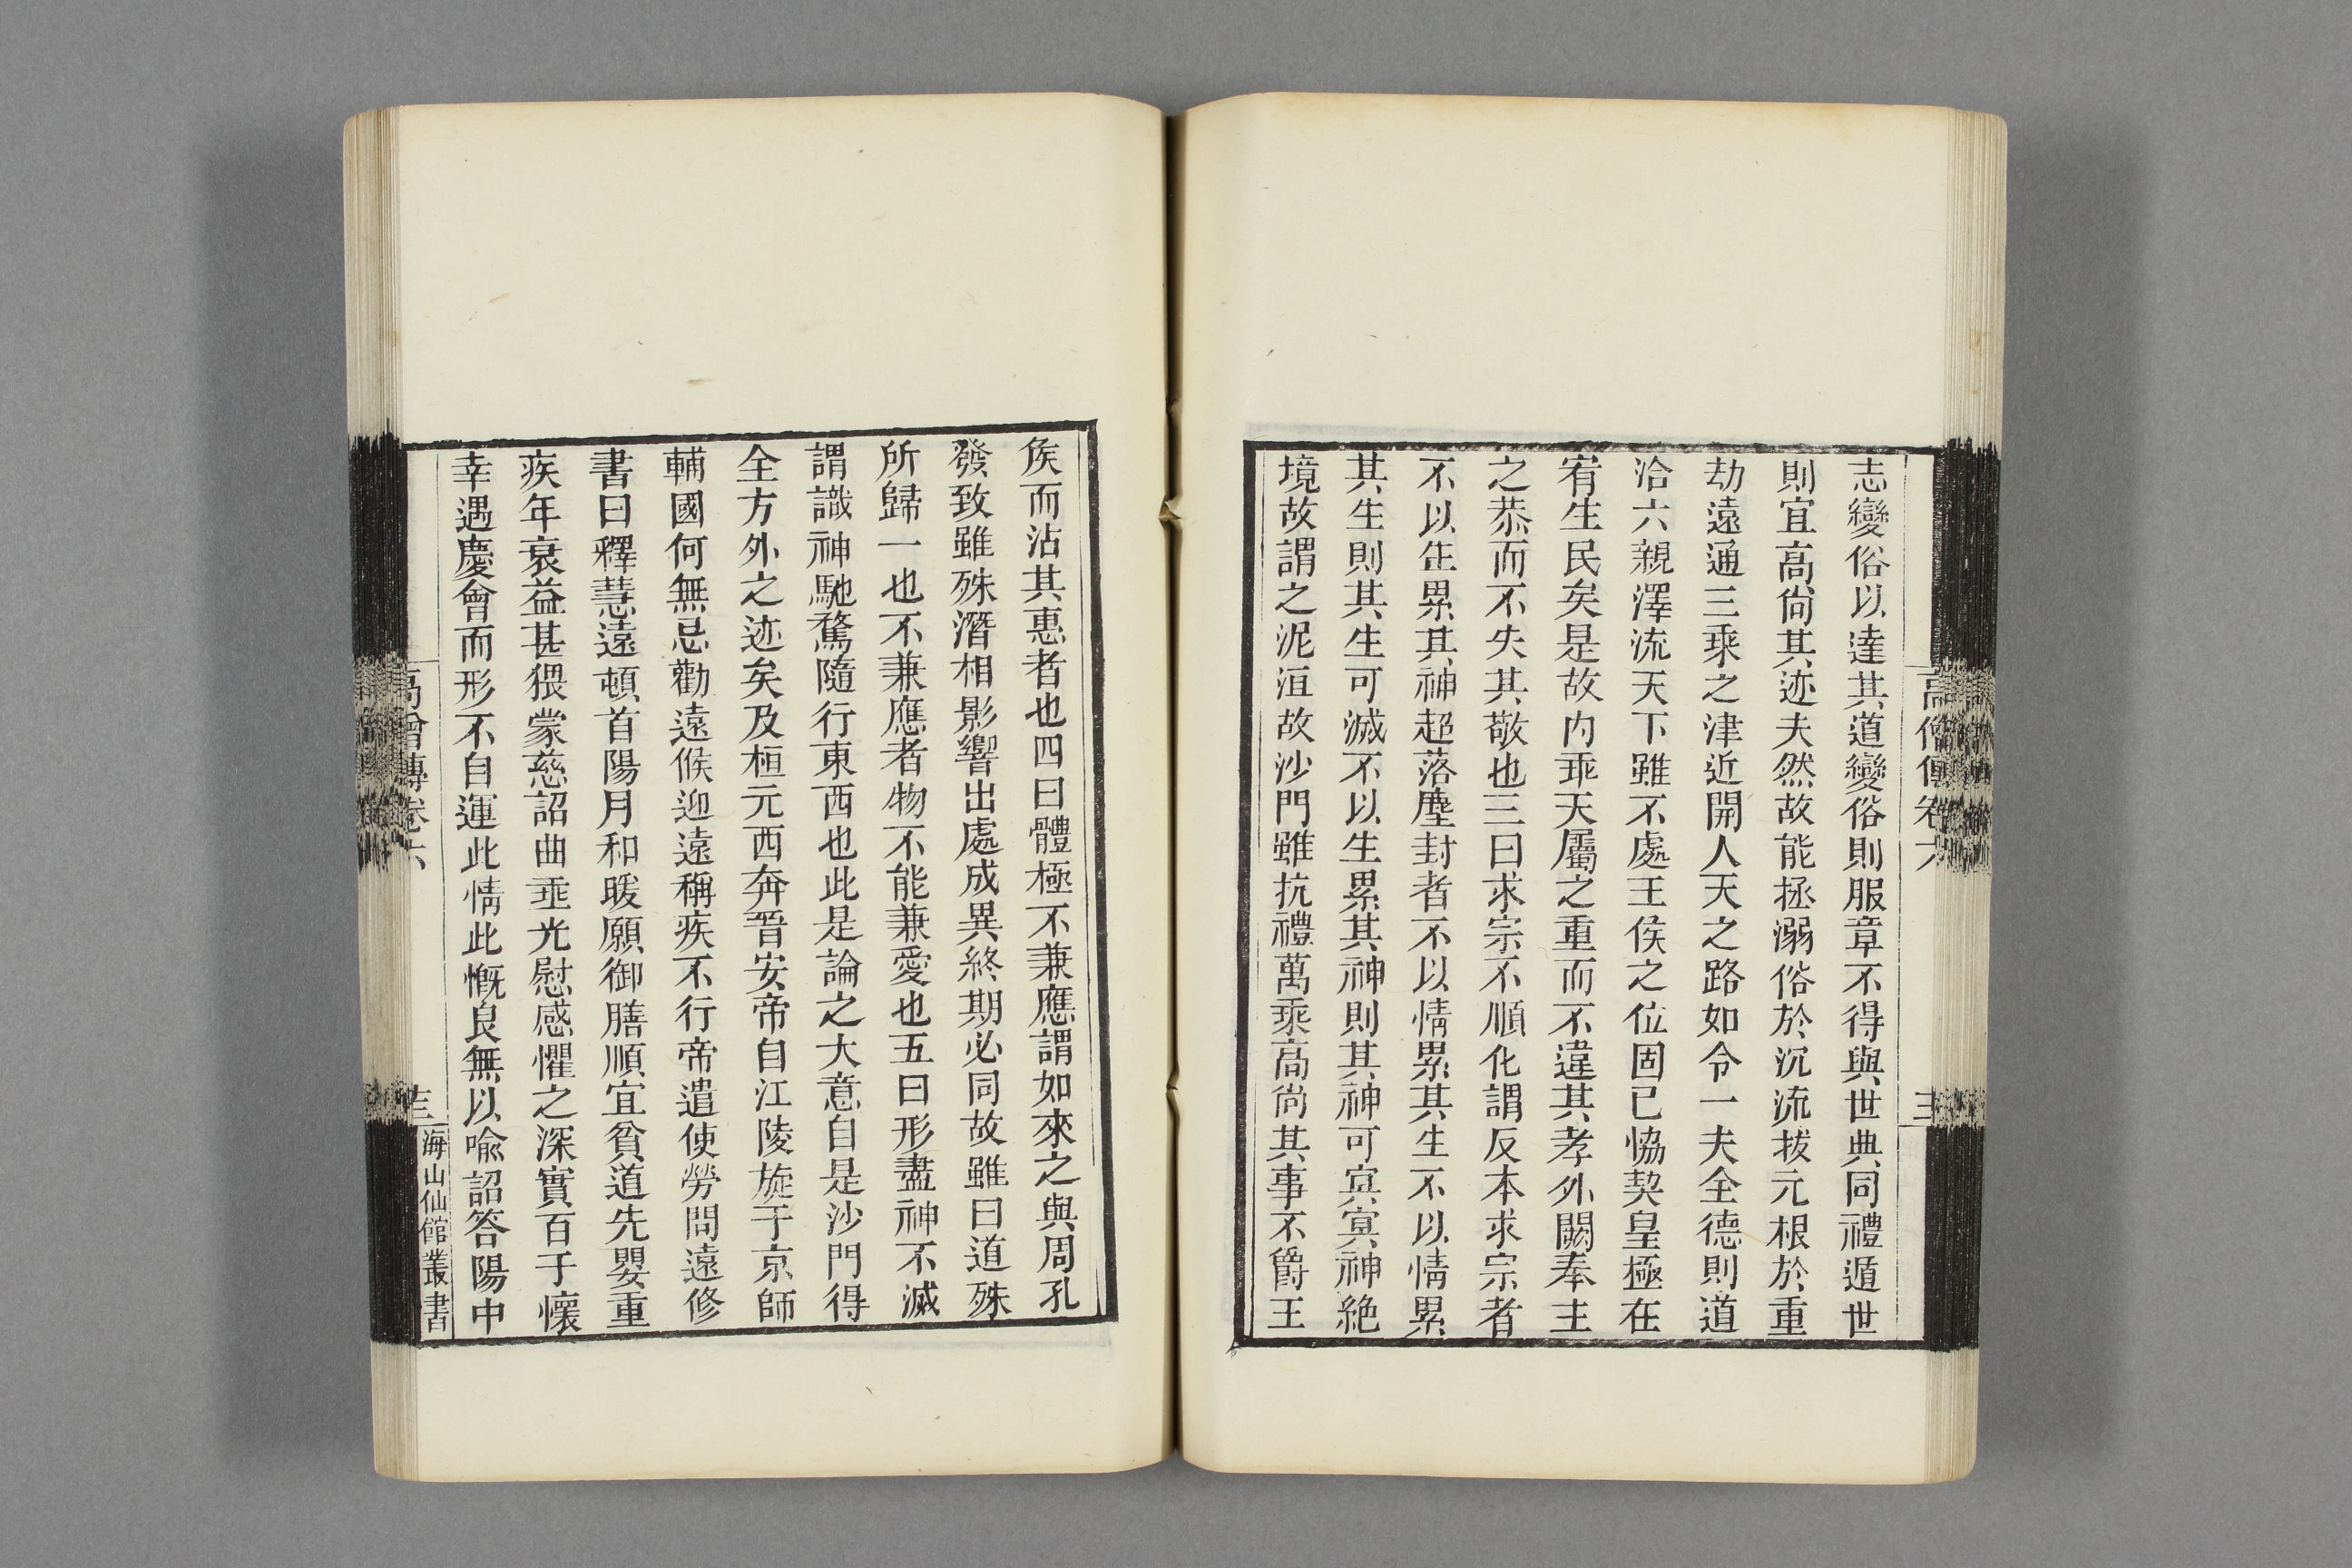 志變俗以達其道變俗則服章不得與世典同禮遁世
則宜高尙其迹夫然故能拯溺俗於沉流拔元根於重
劫遠通三乘之津近開人天之路如令一夫全德則道
洽六親澤流天下雖不處王侯之位固已協契皇極在
宥生民矣是故內乖天屬之重而不違其孝外闕奉主
之恭而不失其敬也三曰求宗不順化謂反本求宗者
不以生累其神超落塵封者不以情累其生不以情累
其生則其生可滅不以生累其神則其神可冥冥神絶
境故謂之泥洹故沙門雖抗禮萬乘高尙其事不爵王
侯而沾其惠者也四曰體極不兼應謂如來之與周孔
發致雖殊潛相影響出處成異終期必同故雖曰道殊
所歸一也不兼應者物不能兼愛也五曰形盡神不滅
謂識神馳騖隨行東西也此是論之大意自是沙門得
全方外之迹矣及桓元西奔晉安帝自江陵旋于京師
輔國何無忌勸遠候迎遠稱疾不行帝遣使勞問遠修
書曰釋慧遠頓首陽月和暖願御膳順宜貧道先嬰重
疾年衰益甚猥蒙慈詔曲垂光慰感懼之深實百于懷
幸遇慶會而形不自運此情此慨良無以喩詔答陽中
高僧傳卷六
海山仙館叢書